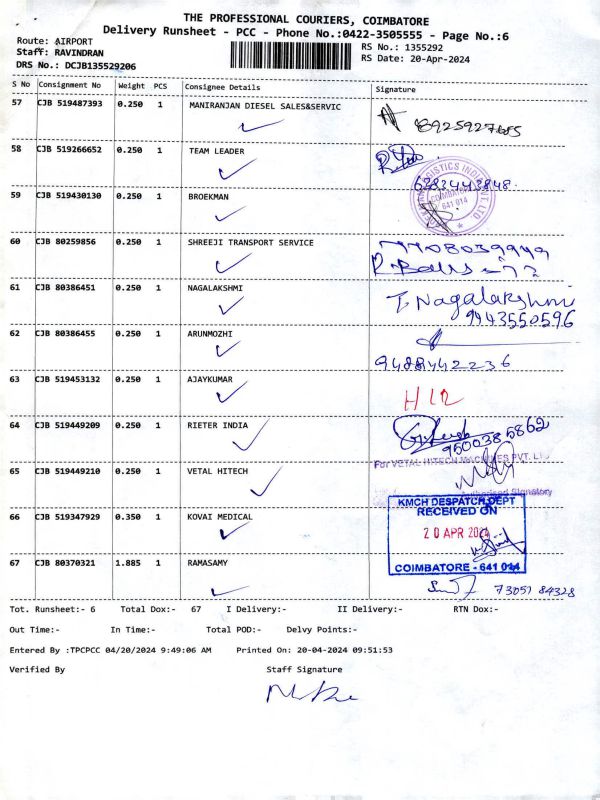 THE PROFESSIONAL COURIERS, COIMBATORE
Delivery Runsheet - PCC - Phone No.:0422-3505555 - Page No.:6
Route: AIRPORT
Staff: RAVINDRAN
DRS No.: DCJB135529206
RS No.: 1355292
RS Date: 20-Apr-2024
S No Consignment No Weight PCS Consignee Details Signature
57 CJB 519487393 0.250 1 MANIRANJAN DIESEL SALES&SERVIC
58 CJB 519266652 0.250 1 TEAM LEADER
6383443848
59 CJB 519430130 0.250 1 BROEKMAN
COIMBATORE
641 014
60 CJB 80259856 0.250 1 SHREEJI TRANSPORT SERVICE
61 CJB 80386451 0.250 1 NAGALAKSHMI
T. Nagalakshmi
9443550596
62 CJB 80386455 0.250 1 ARUNMOZHI
9488442236
63 CJB 519453132 0.250 1 AJAYKUMAR
64 CJB 519449209 0.250 1 RIETER INDIA
9500385862
For VETAL HITECH MACHINES PVT. LTD
65 CJB 519449210 0.250 1 VETAL HITECH
Authorised Signatory
66 CJB 519347929 0.350 1 KOVAI MEDICAL
KMCH DESPATCH DEPT
RECEIVED ON
20 APR 2024
COIMBATORE - 641 014
67 CJB 80370321 1.885 1 RAMASAMY
73051 84328
Tot. Runsheet:- 6 Total Dox:- 67 I Delivery:- II Delivery:- RTN Dox:-
Out Time:- In Time:- Total POD:- Delvy Points:-
Entered By :TPCPCC 04/20/2024 9:49:06 AM Printed On: 20-04-2024 09:51:53
Verified By Staff Signature